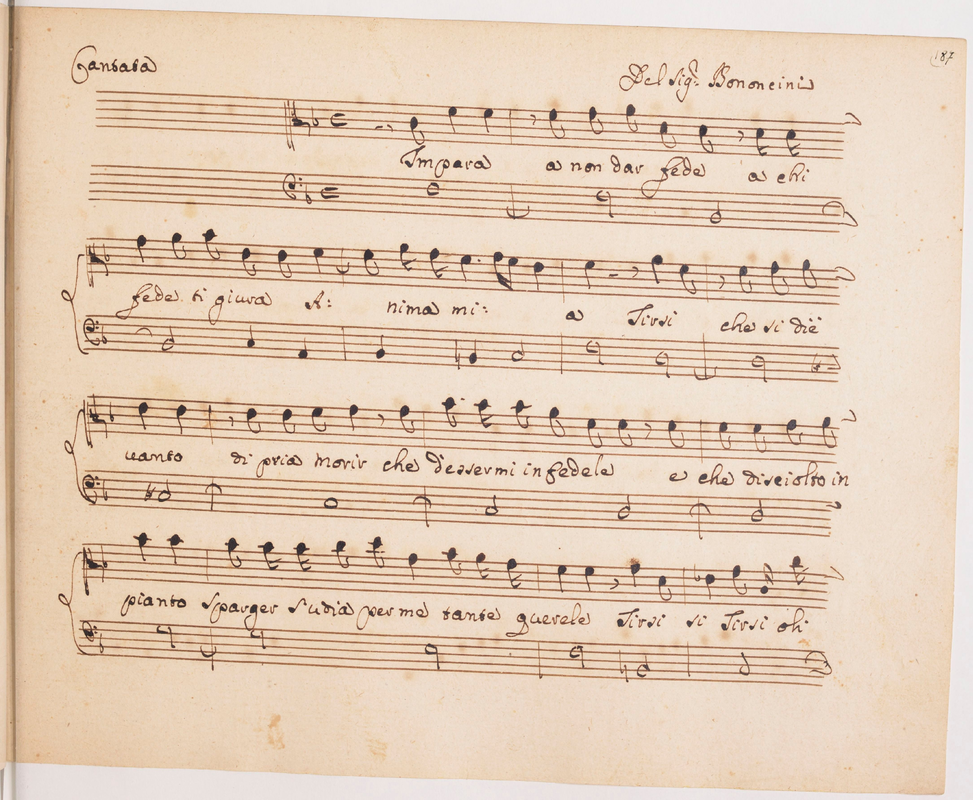 187
Cantata
Del Sig.r Bononcini
Impara a non dar fede a chi
fede ti giura A: nima mi: a Tirsi che si diè
uanto di pria morir che d'essermi infedele e che disciolto in
pianto sparger s'udia per me tante querele Tirsi si Tirsi oh